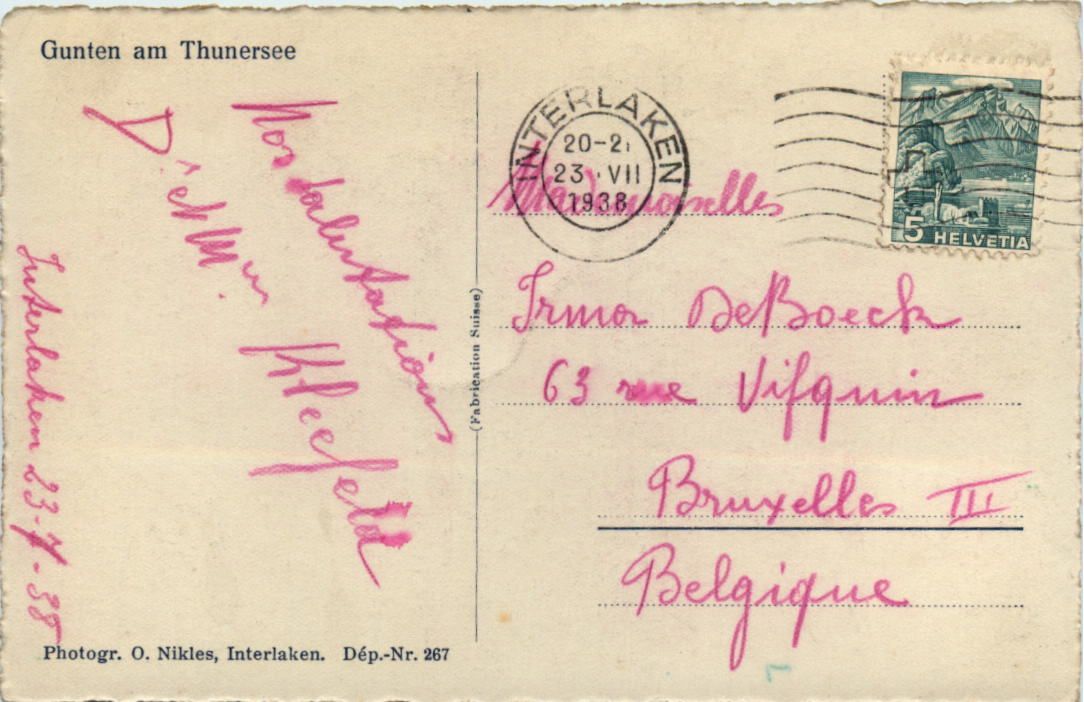 Gunten am Thunersee
Nos salutations
Dr et Mme Kleefeld
Interlaken 23-7-38
Photogr. O. Nikles, Interlaken. Dép.-Nr. 267
(Fabrication Suisse)
INTERLAKEN
20-21
23.VII
1938
5 HELVETIA
Mademoiselles
Irma DeBoeck
63 rue Vifquin
Bruxelles III
Belgique